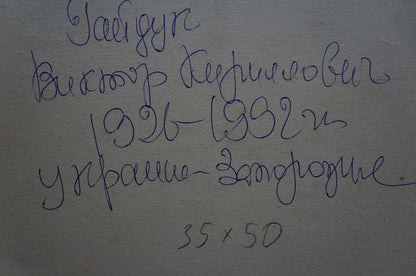 Гайдук
Виктор Кириллович
1926-1992 гг
Украина-Запорожье
35 x 50